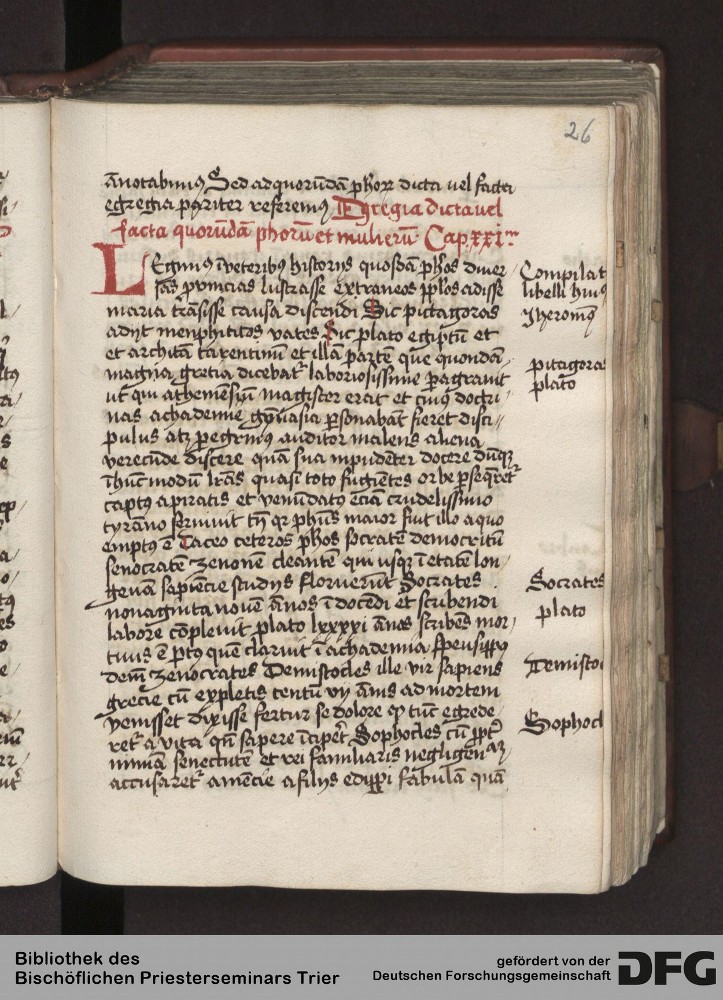 26
ānotabimꝰ Sed ad quorūdā phoꝝ dicta uel facta
egregia pariter referemꝰ Egregia dicta uel
facta quorūdā phorū et mulierū Cap. xxim
LEgimꝰ ī veteribꝰ historijs quosdā phōs diuer
sas puincias lustrasse extraneos pplōs adisse
maria trāsisse causa discendi Sic pictagoras
adijt menphiticos vates Sic plato egiptū et
et architā tarentinū et illā partē que quondā
magna gretia dicebatr laboriosissime pagrauit
ut qui atheniēsiū magister erat et cuiꝰ doctri
nas achademie gignasia psonabāt fieret disci
pulus atꝫ pegrinꝰ auditor malens aliena
verecūde discere quā sua inpudēter docere dūqꝫ
ī hūc modū lrās quasi toto fugiētes orbe pseqretr
captꝰ a piratis et venūdatꝰ eciā crudelissimo
tyrāno seruiuit tn̄ qr phūs maior fuit illo a quo
emptꝰ ē Taceo ceteros phōs socratē democritū
senocratē zenonē cleantē qui usqꝫ ī etatē lon
geuā sapiēcie studijs floruerūt Socrates
nonaginta nouē ānos ī docēdi et scribendi
labore cōpleuit plato lxxxi ānos scribēs mor
tuus ē pꝰ quē claruit ī achademia speusippꝰ
dem̄ zenocrates Demistocles ille vir sapiens
grecie cū expletis centū vij ānis ad mortem
venisset dixisse fertur se dolore qꝫ tūc egrede
retr a vita qn̄ sapere īcipet Sophocles cū ppt
nimiā senectutē et rei familiaris negligenciā
accusaretr amēcie a filijs edippi fabulā quā
Compilat
libelli huiꝰ
Jheronimꝰ
pitagoras
plato
Socrates
plato
Demistoc
Sophocl
Bibliothek des
Bischöflichen Priesterseminars Trier
gefördert von der
Deutschen Forschungsgemeinschaft
DFG